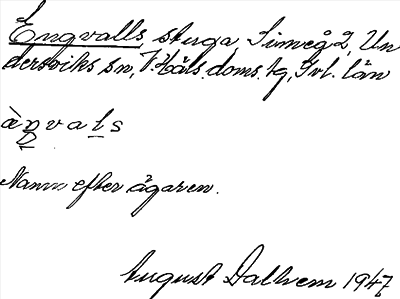 Engvalls stuga, Simeå 2, Un
dersviks sn, V. Häls. doms. tg, Gvl. län
àŋvaḷs
Namn efter ägaren.
August Dalhem 1947